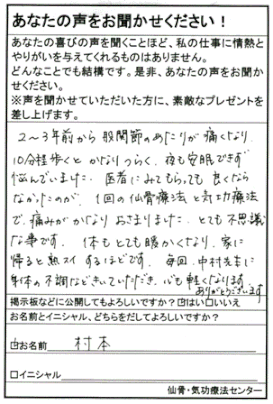 あなたの声をお聞かせください！
あなたの喜びの声を聞くことほど、私の仕事に情熱と
やりがいを与えてくれるものはありません。
どんなことでも結構です。是非、あなたの声をお聞か
せください。
※声を聞かせていただいた方に、素敵なプレゼントを
差し上げます。
2〜3年前から股関節のあたりが痛くなり、
10分程歩くとかなりつらく、夜も安眠できず
悩んでいました。医者にみてもらっても良くなら
なかったのが、1回の仙骨療法と気功療法
で、痛みがかなりおさまりました。とても不思議
な事です。体もとても暖かくなり、家に
帰ると熟スイするほどです。毎回、中村先生に
身体の不調などきいていただき、心も軽くなります。
ありがとうございます
掲示板などに公開してもよろしいですか？はい□いいえ
お名前とイニシャル、どちらをだしてよろしいですか？
お名前 村本
□イニシャル
仙骨・気功療法センター